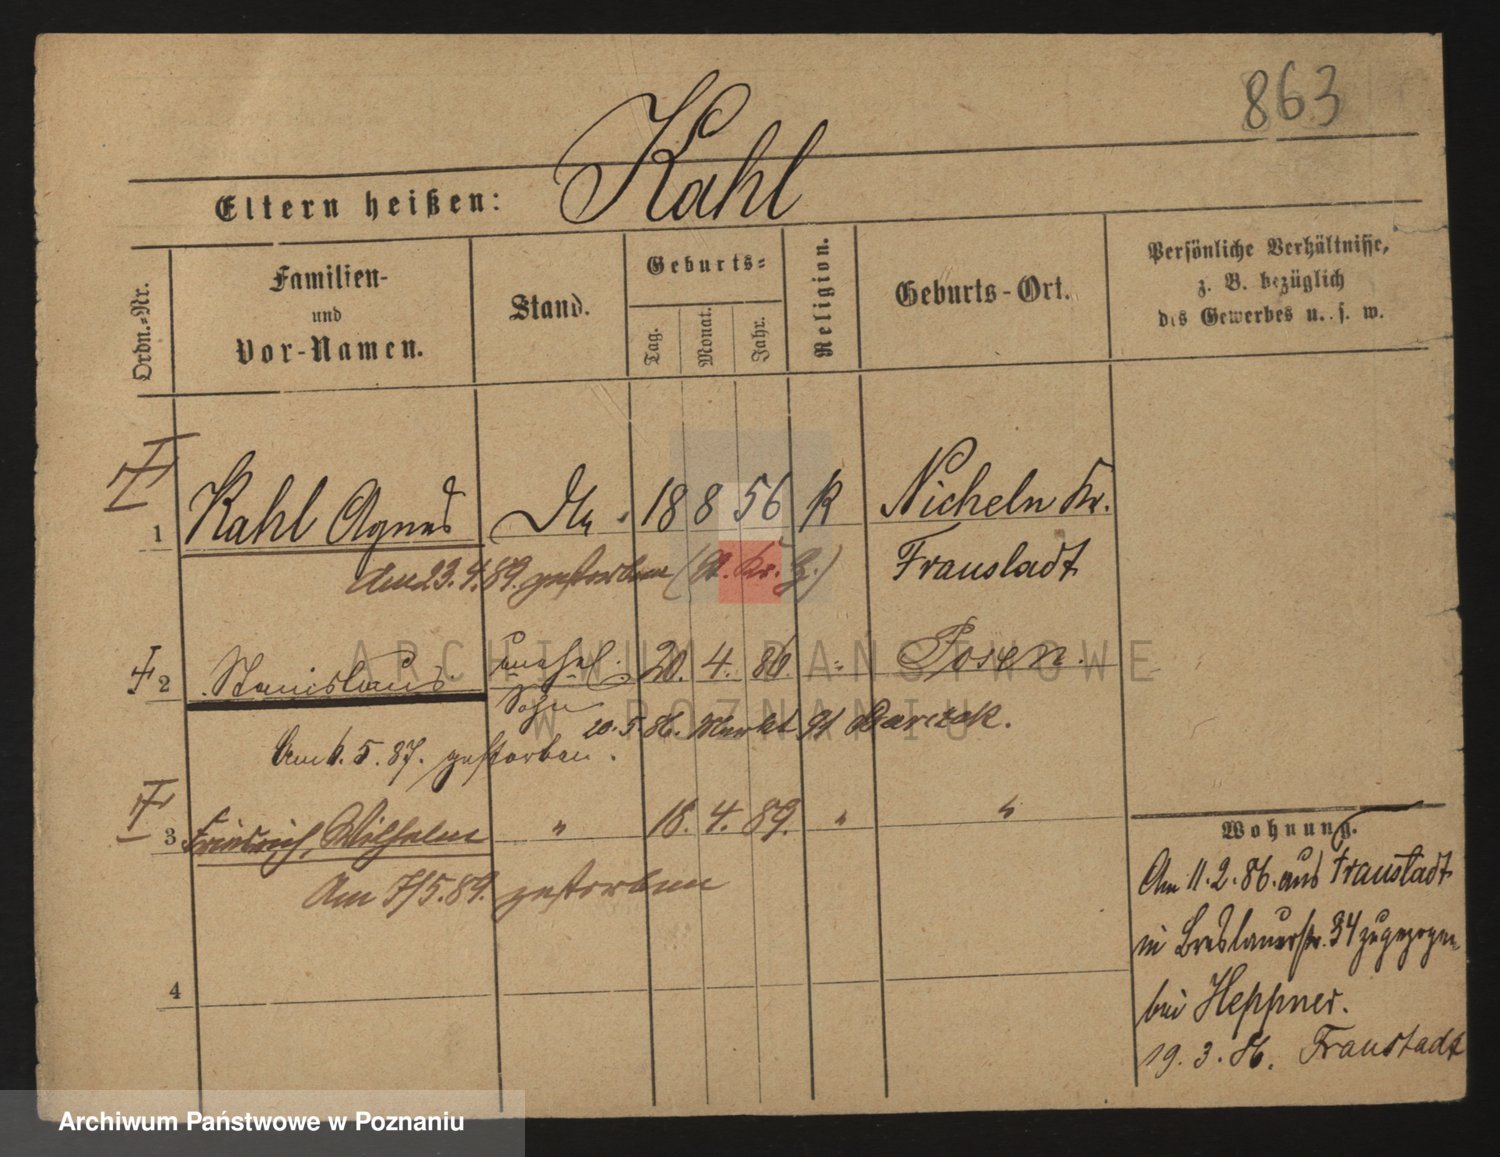 863
Kahl
Eltern heißen:
Ordn.-Nr.
Familien- und Vor-Namen.
Stand.
Geburts-
Tag.
Monat.
Jahr.
Religion.
Geburts-Ort.
Persönliche Verhältnisse,
z. B. bezüglich
des Gewerbes u. s. w.
1 Kahl Agnes 18 8 56 k Nicheln Kr.
Fraustadt
Am 23.4.89. gestorben
2 Stanislaus unehel. 20. 4. 86. " Posen.
Sohn
20.5.86. Markt 91 Barczak.
Am 6.5.87. gestorben.
3 Friedrich, Wilhelm " 18. 4. 89. " "
Am 7/5.89. gestorben
4
Wohnung.
Am 11.2.86. aus Fraustadt
in Breslauerstr. 34 zugezogen
bei Heppner.
19.3.86. Fraustadt
ARCHIWUM PAŃSTWOWE
W POZNANIU
Archiwum Państwowe w Poznaniu